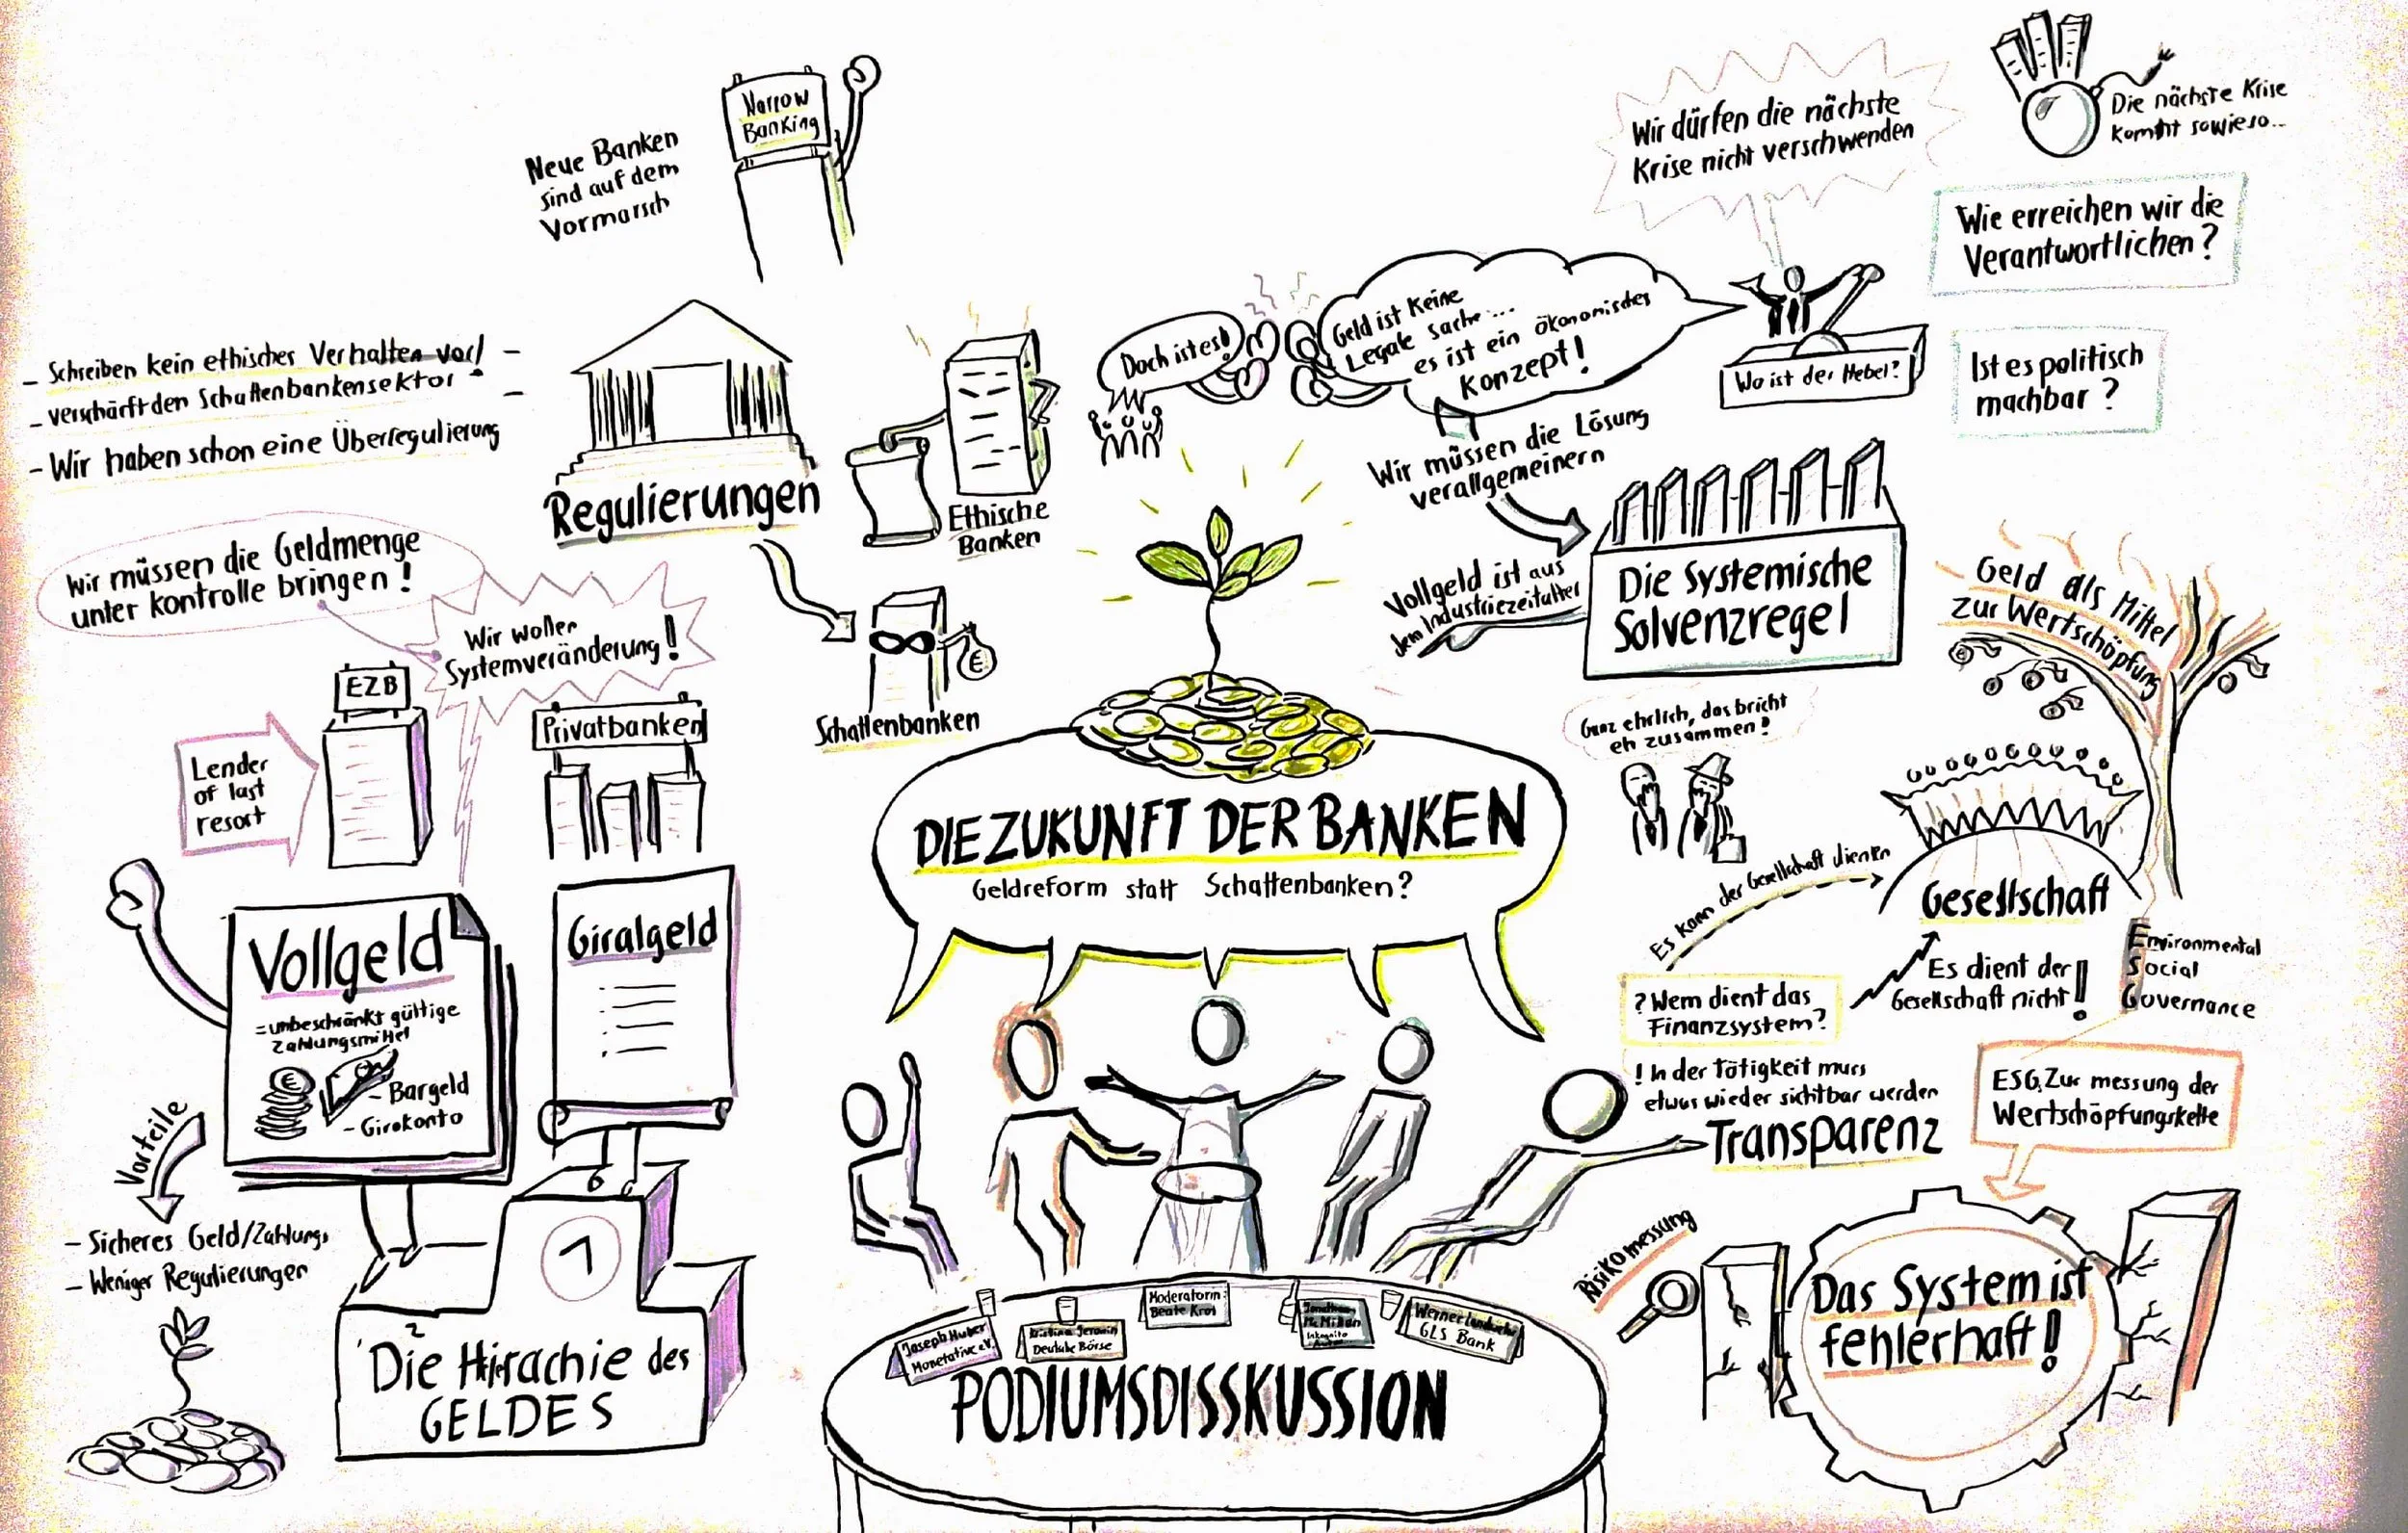 Narrow
Banking
Neue Banken
sind auf dem
Vormarsch
- Schreiben kein ethisches Verhalten vor! -
- verschärft den Schattenbankensektor -
- Wir haben schon eine Überregulierung
Regulierungen
Ethische
Banken
Schattenbanken
€
Wir müssen die Geldmenge
unter kontrolle bringen!
Wir wollen
Systemveränderung!
EZB
Lender
of last
resort
Privatbanken
Vollgeld
= unbeschränkt gültige
Zahlungsmittel
€
- Bargeld
- Girokonto
Giralgeld
Vorteile
- Sicheres Geld/Zahlungs
- Weniger Regulierungen
1
2
Die Hirachie des
GELDES
Doch ist es!
Geld ist keine
Legale sache...
es ist ein ökonomisches
Konzept!
DIE ZUKUNFT DER BANKEN
Geldreform statt Schattenbanken?
Joseph Huber
Monetative e.V.
Kristina Jeromin
Deutsche Börse
Moderatorin:
Beate Krol
Jonathan
McMillan
Inkognito
Autor
Werner Landwehr
GLS Bank
PODIUMSDISSKUSSION
Wir dürfen die nächste
Krise nicht verschwenden
Die nächste Krise
kommt sowieso...
Wie erreichen wir die
Verantwortlichen?
Wo ist der Hebel?
Ist es politisch
machbar?
Wir müssen die Lösung
verallgemeinern
Vollgeld ist aus
dem Industriezeitalter
Die Systemische
Solvenzregel
Geld als Mittel
zur Wertschöpfung
Ganz ehrlich, das bricht
eh zusammen!
Es kann der Gesellschaft dienen
Gesellschaft
Es dient der
Gesellschaft nicht!
Environmental
Social
Governance
? Wem dient das
Finanzsystem?
! In der Tätigkeit muss
etwas wieder sichtbar werden
Transparenz
ESG, Zur messung der
Wertschöpfungskette
Risikomessung
Das System ist
fehlerhaft!